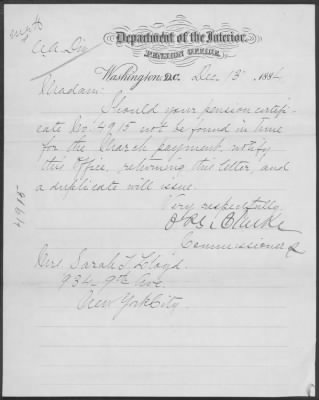 Department of the Interior,
PENSION OFFICE,
A.A. Div
Washington, D.C. Dec. 13, 1884
Madam:
Should your pension certifi-
cate No. 4915 not be found in time
for the March payment, notify
this Office, returning this letter, and
a duplicate will issue.
Very respectfully,
Clarke
Commissioner
4915
Mrs. Sarah T. Lloyd,
934- 9th Ave.
New York City.